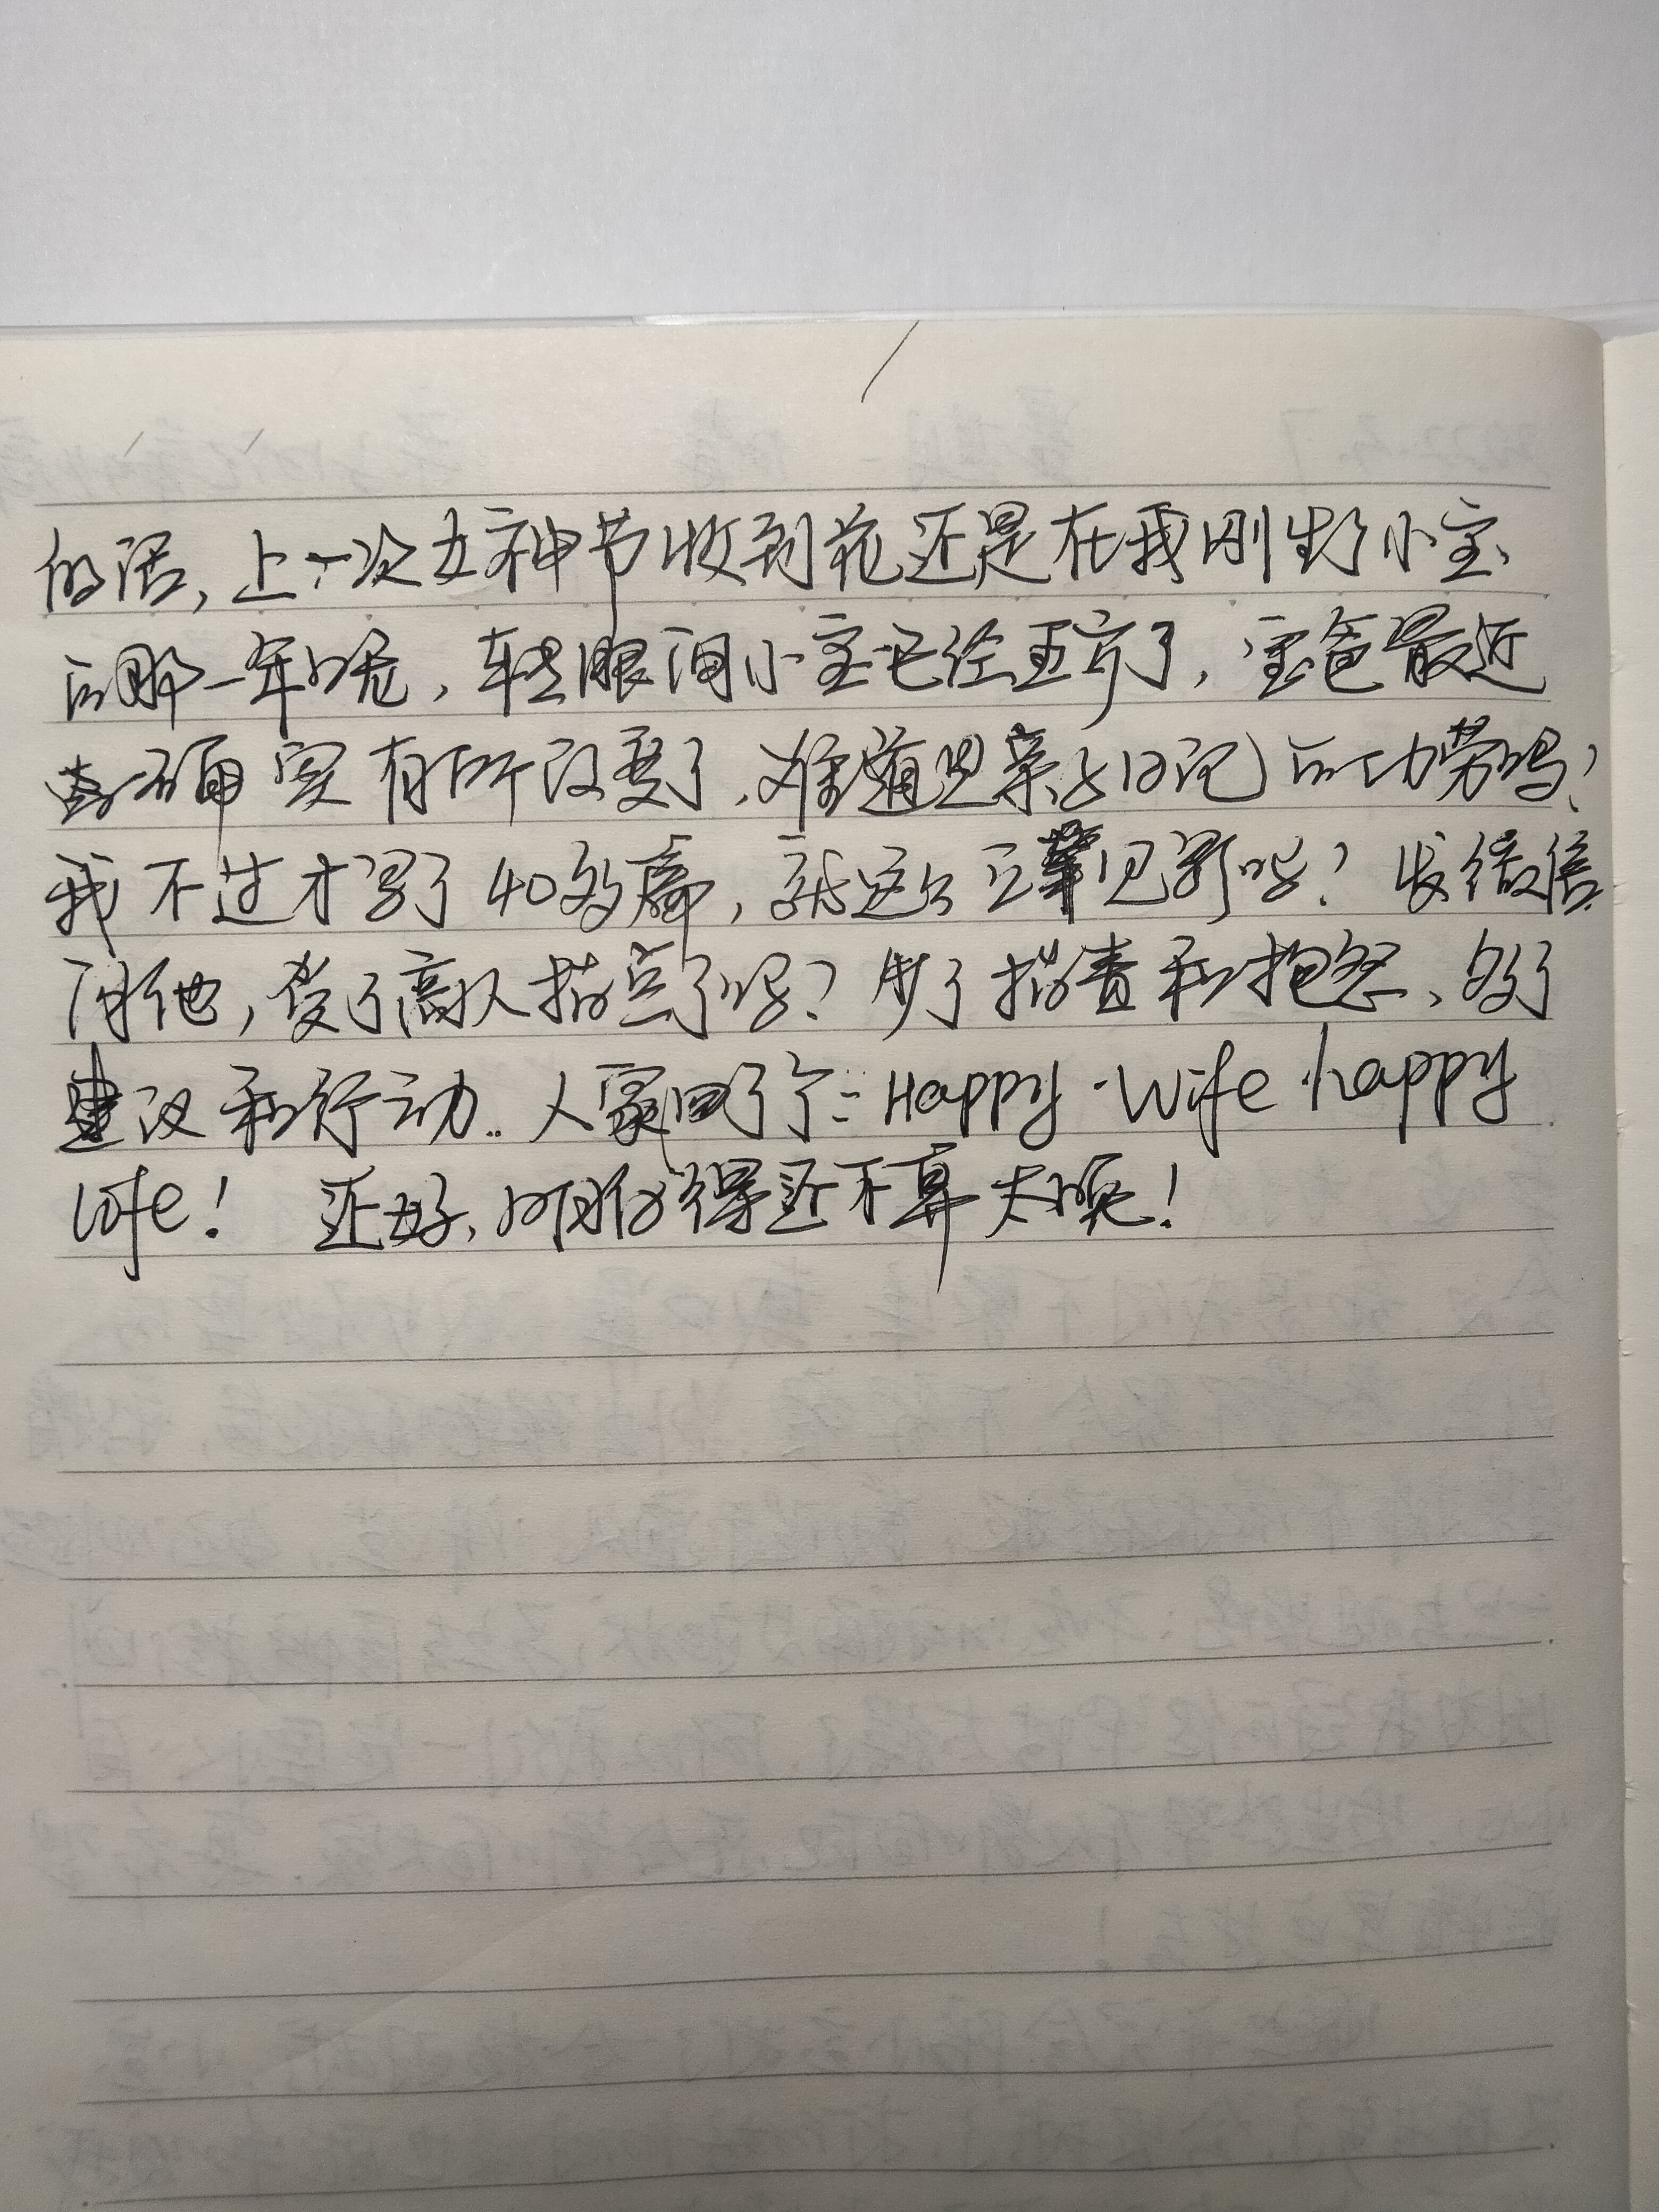 的话，上一次女神节收到花还是在我刚生了小宝
的那一年呢，转眼间小宝已经五岁了，宝爸最近
确实有所改变了，难道是亲子日记的功劳吗？
我不过才写了40多篇，就这么立竿见影吗？发微信
问他，受了高人指点了吗？少了指责和抱怨，多了
建议和行动..人家回了个：Happy Wife happy
life！ 还好，明白得还不算太晚！